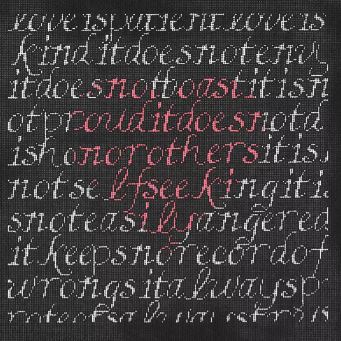 loveispatientloveis
kinditdoesnotenvy
itdoesnotboastitisn
otprouditdoesnotd
ishonorothersitis
notselfseekingitis
snoteasilyangered
itkeepsnorecordof
wrongsitalwaysp